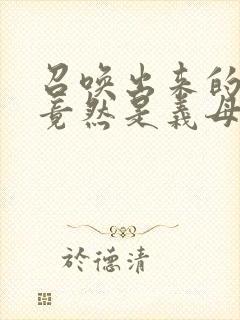 召唤出来的
竟然是义母
於德清